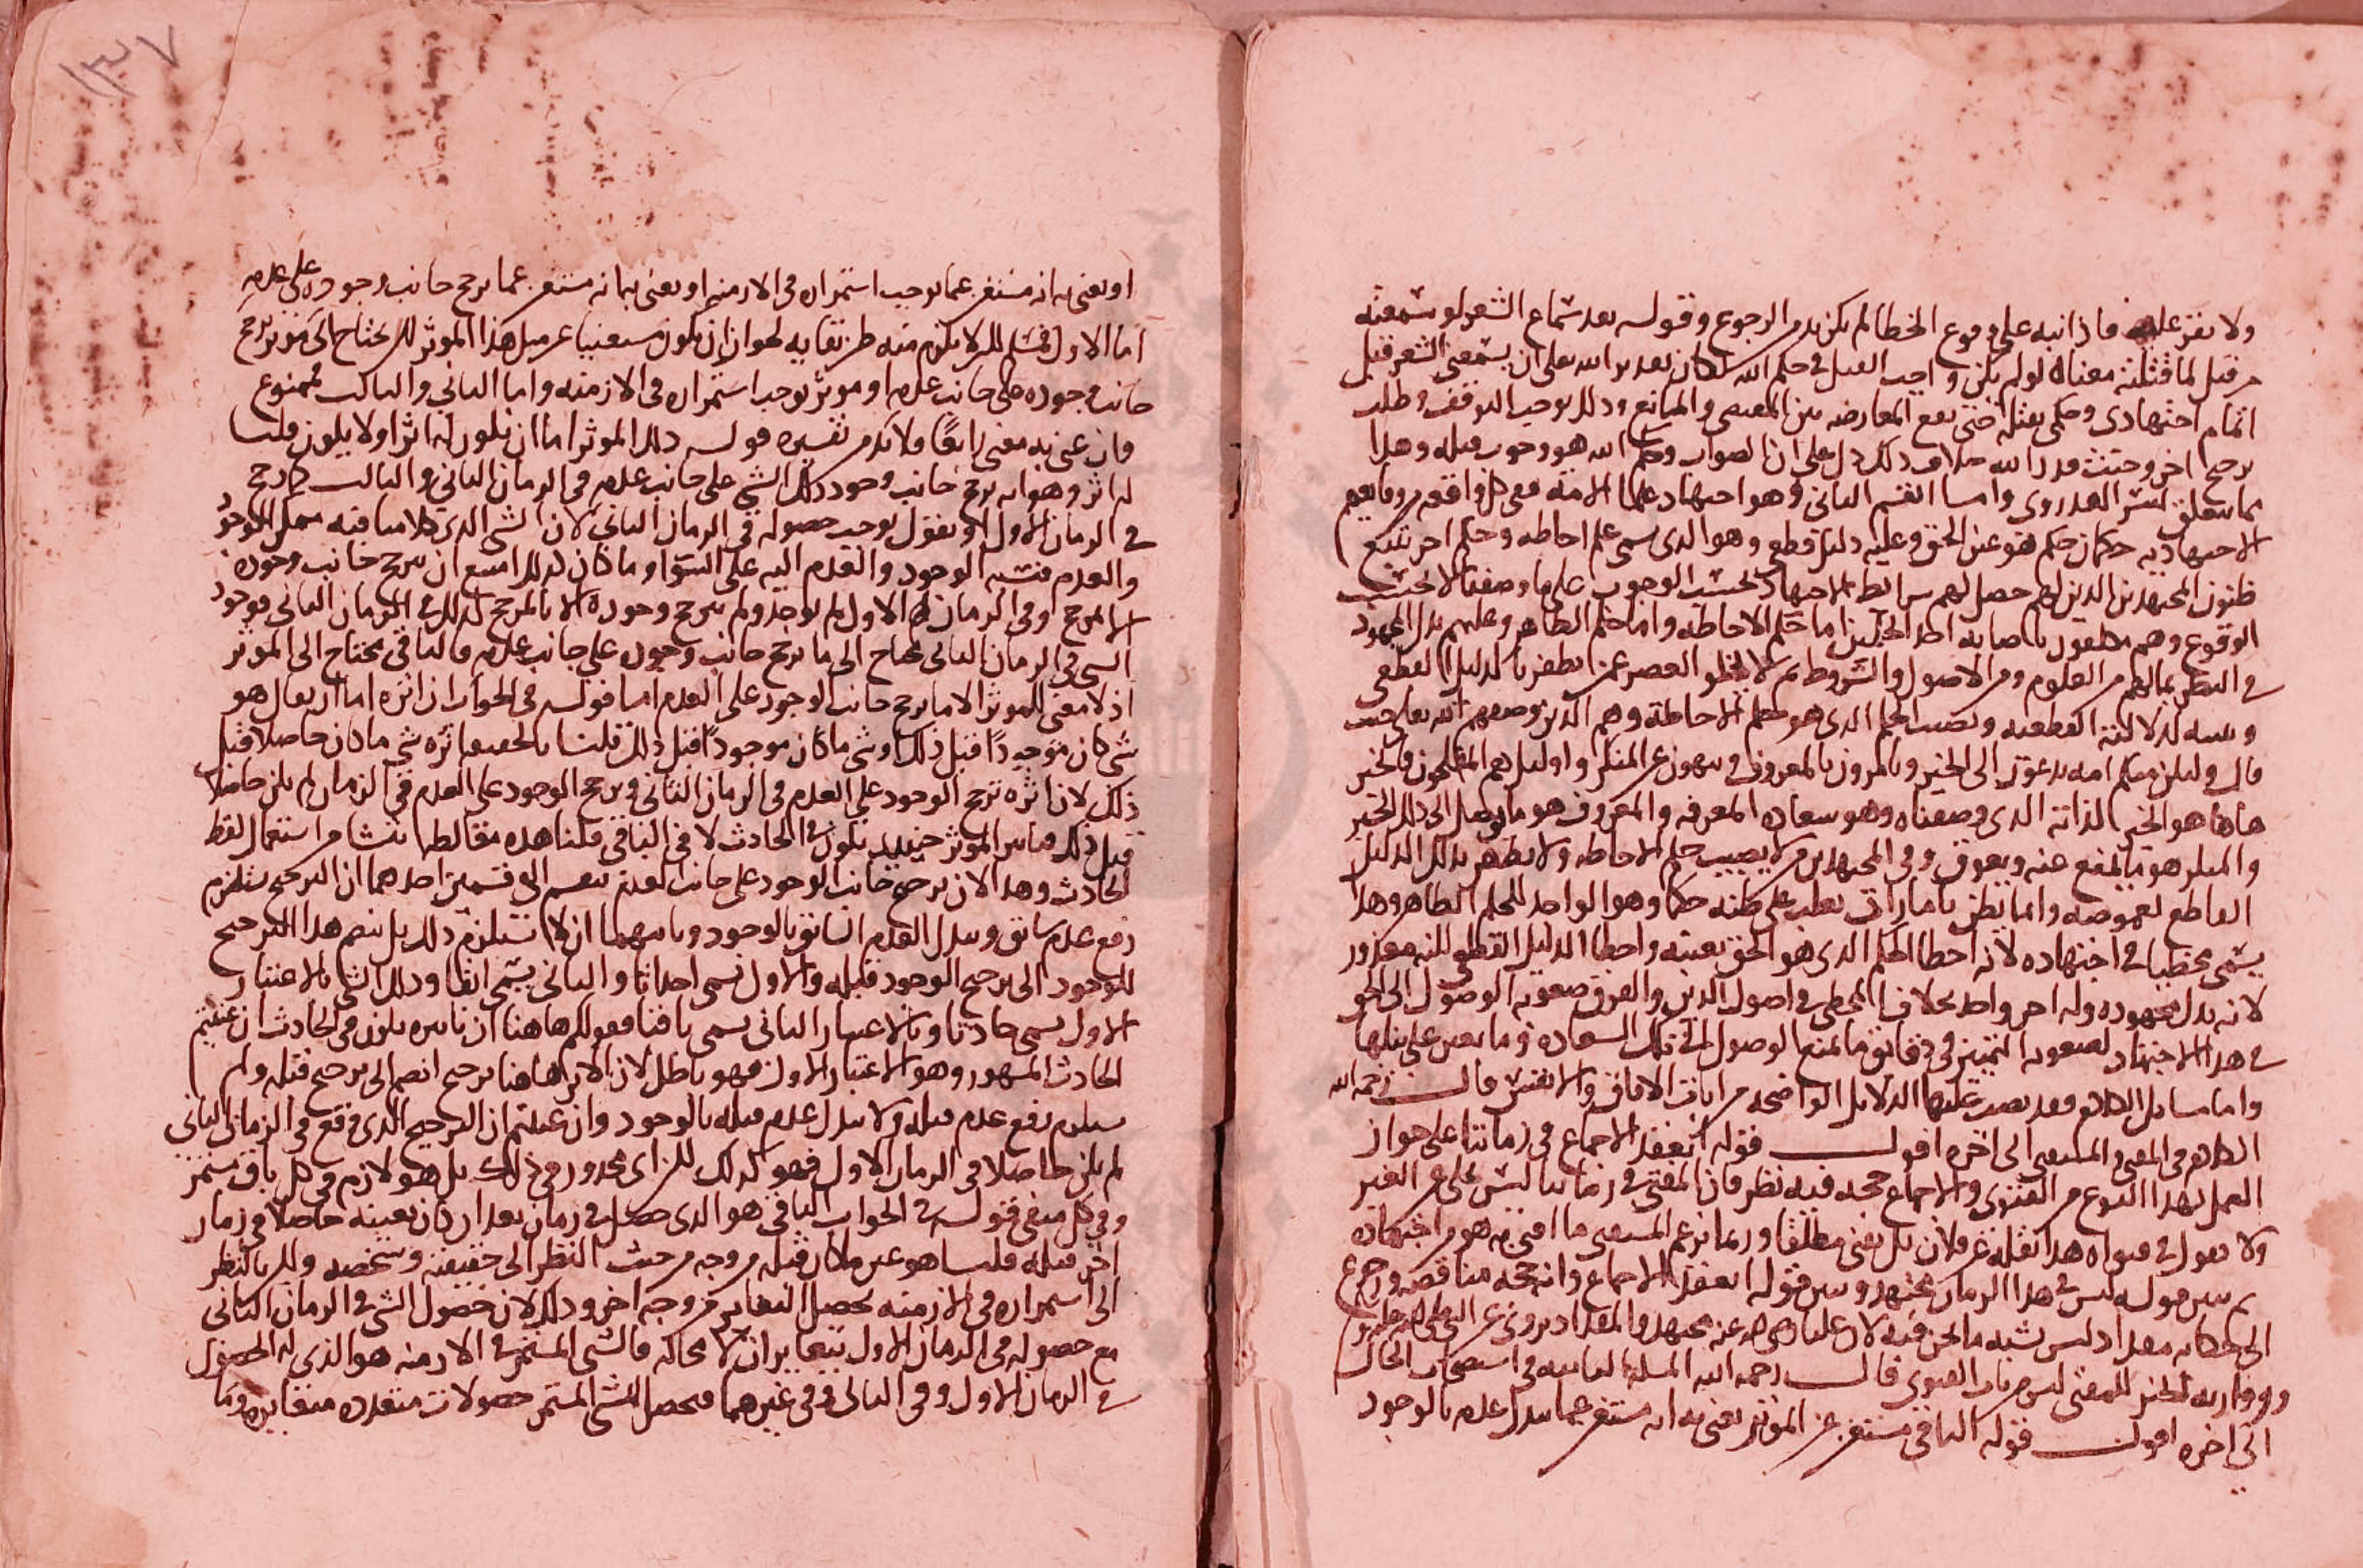 ولا يقر عليه فاذا نبه على وقوع الخطا لم يكن بد من الرجوع وقوله بعد سماع الشعر لو سمعته
من قبل لما قتلته معناه لو لم يكن واجب القتل في حكم الله لكان بعد ير الله على ان يسمعنى الشعر قبل
اتمام اجتهادى وحكمى بقتله حتى تقع المعارضه بين المقتضى والمانع وذلك يوجب التوقف وطلب
ترجيح اخر وحيث قدر الله خلاف ذلك دل على ان الصواب وحكم الله هو وجوب قتله وهذا
مما يتعلق بسر القدر وى واما القسم الثانى وهو اجتهاد علما الامة ففى كل واقعه من وقايعهم
الاجتهاديه حكمان حكم هو عين الحق وعليه دليل قطعى وهو الذى يسمى حكم احاطه وحكم اخر يتبع
ظنون المجتهدين الذين لهم حصل لهم شرايط الاجتهاد بحسب الوجوب على ما وصفنا لا بحسب
الوقوع وهم مكلفون باصابة احد الحكمين اما حكم الاحاطه واما حكم الظاهر وعليهم بذل المجهود
في النظر بمالهم من العلوم ومن الاصول والشروط ثم لا يخلو العصر عمن يظفر بالدليل القطعى
وينبه لدلالته القطعيه ويصيب الحكم الذى هو حكم الاحاطة وهم الذين وصفهم الله تعالى حيث
قال ولتكن منكم امه يدعون الى الخير ويامرون بالمعروف وينهون عن المنكر واوليك هم المفلحون فالخير
هاهنا هو الخير الذاته الذى وصفناه وهو سعاده المعرفه والمعروف هو ما يوصل الى ذلك الخير
والمنكر هو ما يمنع عنه ويعوق وفى المجتهدين من لا يصيب حكم الاحاطه ولا يظفر بذلك الدليل
القاطع لغموضه وانما يظفر بامارات يغلب على ظنه حكما وهو الواجد للحكم الظاهر وهذا
يسمى مخطيا في اجتهاده لانه اخطا الحكم الذى هو الحق بعينه واخطا الدليل القطعى لكنه معذور
لانه بذل مجهوده وله اجر واحد بخلاف المخطى في اصول الدين والفرق صعوبه الوصول الى الحق
في هذا الاجتهاد لصعوبه التمييز فى دقايق ما يمنع الوصول الى تلك السعاده وما يعين على نيلها
واما مسايل الكلام فقد نصبت عليها الدلايل الواضحه من ايات الافاق والانفس قال رحمه الله
الكلام فى المفتى والمستفتى الى اخره اقول قوله انعقد الاجماع فى زماننا على جواز
العمل بهذا النوع من الفتوى والاجماع حجه فيه نظر فان المفتى في زماننا ليس يحكى عن الغير
ولا يقول في فتواه هذا نقلته عن فلان بل يفتى مطلقا وربما يزعم المستفتى ما افتى به هو من اجتهاده
ثم بين قوله ليس في هذا الزمان مجتهد وبين قوله انعقد الاجماع وانه حجه مناقضه ورجوع
الى حكاية مقداد ليس يشبه ما نحن فيه لان عليا رضى الله عنه مجتهد والمقداد يروى عن النبى صلى الله عليه
لكن للمفتى ليس من باب الفتوى قال رحمه الله المسله الثانيه في استصحاب الحال
الى اخره اقول قوله الباقى مستغن عن المؤثر يعنى به انه مستغن عما يبدل عدمه بالوجود
او يعنى به انه مستغن عما يوجب استمراره فى الازمنه او يعنى به انه مستغن عما يرجح جانب وجوده على عدمه
اما الاول فمسلم لكن لا يلزم منه طريقا به لجواز ان يكون مستغنيا عن مثل هذا المؤثر لكن يحتاج الى مؤثر يرجح
جانب وجوده على جانب عدمه او مؤثر يوجب استمراره فى الازمنه واما الثانى والثالث فممنوع
فان عنى به معنى رابعا فلا بد من تفسيره قوله ذلك المؤثر اما ان يكون له اثر او لا يكون قلنا
له اثر وهو انه يرجح جانب وجود ذلك الشى على جانب عدمه فى الزمان الثانى والثالث كما رجح
في الزمان الاول او نقول يوجب حصوله فى الزمان الثانى لان الشى الذى كلامنا فيه ممكن الوجود
والعدم فنسبه الوجود والعدم اليه على السوا وما كان كذلك امتنع ان يترجح جانب وجوده
الا لمرجح وفى الزمان الاول لم يوجد ولم يترجح وجوده الا بالمرجح كذلك في الزمان الثانى فوجود
الشى فى الزمان الثانى يحتاج الى ما يرجح جانب وجوده على جانب عدمه فالباقى محتاج الى المؤثر
اذ لا معنى للمؤثر الا ما يرجح جانب الوجود على العدم اما قوله فى الجواب ان اثره اما ان يقال هو
شى كان موجودا قبل ذلك او شى ما كان موجودا قبل ذلك قلنا بالحقيقه اثره شى ما كان حاصلا قبل
ذلك لان اثره ترجح الوجود على العدم فى الزمان الثانى وترجح الوجود على العدم فى الزمان لم يكن حاصلا
قبل ذلك المؤثر حينئذ يكون في الحادث لا فى الباقى قلنا هذه مغالطه تنشا من استعمال لفظ
الحادث وهذا لان ترجيح جانب الوجود على جانب العدم ينقسم الى قسمين احدهما ان الترجيح يستلزم
رفع عدم سابق وتبدل العدم السابق بالوجود وثانيهما ان لا يستلزم ذلك بل ينضم هذا الترجيح
للوجود الى ترجيح الوجود قبله والاول نسمى احداثا والثانى يسمى ابقا وذلك الشى بالاعتبار
الاول يسمى حادثا وبالاعتبار الثانى يسمى باقيا فقولكم هاهنا ان تاثيره يكون فى الحادث ان عنيتم
الحادث المشهور وهو الاعتبار الاول فهو باطل لان الاثر هاهنا ترجيح انضم الى ترجيح قبله ولم
يستلزم رفع عدم قبله ولا تبدل عدم قبله بالوجود وان عنيتم ان الترجيح الذى وقع فى الزمان الثانى
لم يكن حاصلا فى الزمان الاول فهو كذلك لكن اى محذور فى ذلك بل هو لازم فى كل باق مستمر
وفى كل منفى قوله في الجواب الباقى هو الذى حصل في زمان بعد ان كان بعينه حاصلا فى زمان
اخر قبله قلنا هو عين ما كان قبله من وجه من حيث النظر الى حقيقته وشخصه ولكن بالنظر
الى استمراره فى الازمنه يحصل التغاير من وجه اخر وذلك لان حصول الشى فى الزمان الثانى
مع حصوله فى الزمان الاول يتغايران لا محاله فالشى المستمر في الازمنه هو الذى له الحصول
في الزمان الاول وفى الثانى وفى غيرهما فيحصل للشى المستمر حصولات متعدده متغايره وما